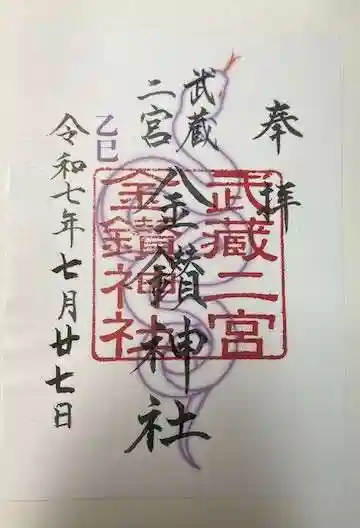 奉拝
武蔵
二宮
金鑚神社
武蔵二宮
金鑚神社
乙巳
令和七年七月廿七日